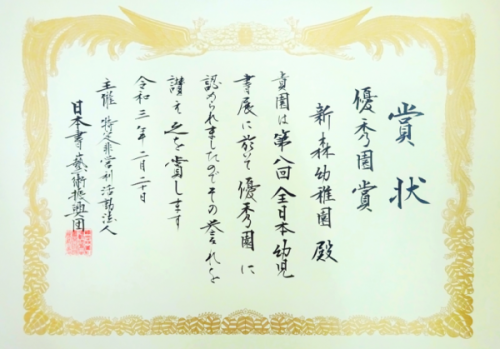 賞状
優秀園賞
新森幼稚園 殿
貴園は第八回全日本幼児
書展に於て優秀園に
認められましたのでその誉れを
讃え之を賞します
令和三年二月二十日
主催 特定非営利活動法人
日本書藝術振興団